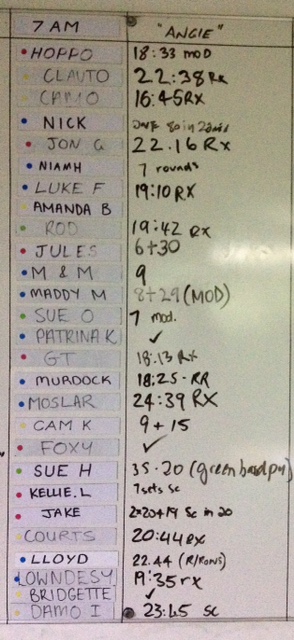 7 AM "ANGIE"
HOPPO 18:33 MOD
CLAUTO 22:38 RX
CAMO 16:45RX
NICK 80 in
JON G 22.16 RX
NIAMH 7 rounds
LUKE F 19:10 RX
AMANDA B
ROD 19:42 RX
JULES 6+30
M & M 9
MADDY M 8+29 (MOD)
SUE O 7 mod.
PATRINA K ✓
GT 18:13 RX
MURDOCK 18:25 -
MOSLAR 24:39 RX
CAM K 9 + 15
FOXY ✓
SUE H 35.20 (green
KELLIE.L 7sets Sc
JAKE Sc in 20
COURTS 20:44 RX
LLOYD 22.44
LOWNDESY 19:35 rx
BRIDGETTE ✓
DAMO I 23:45 SC